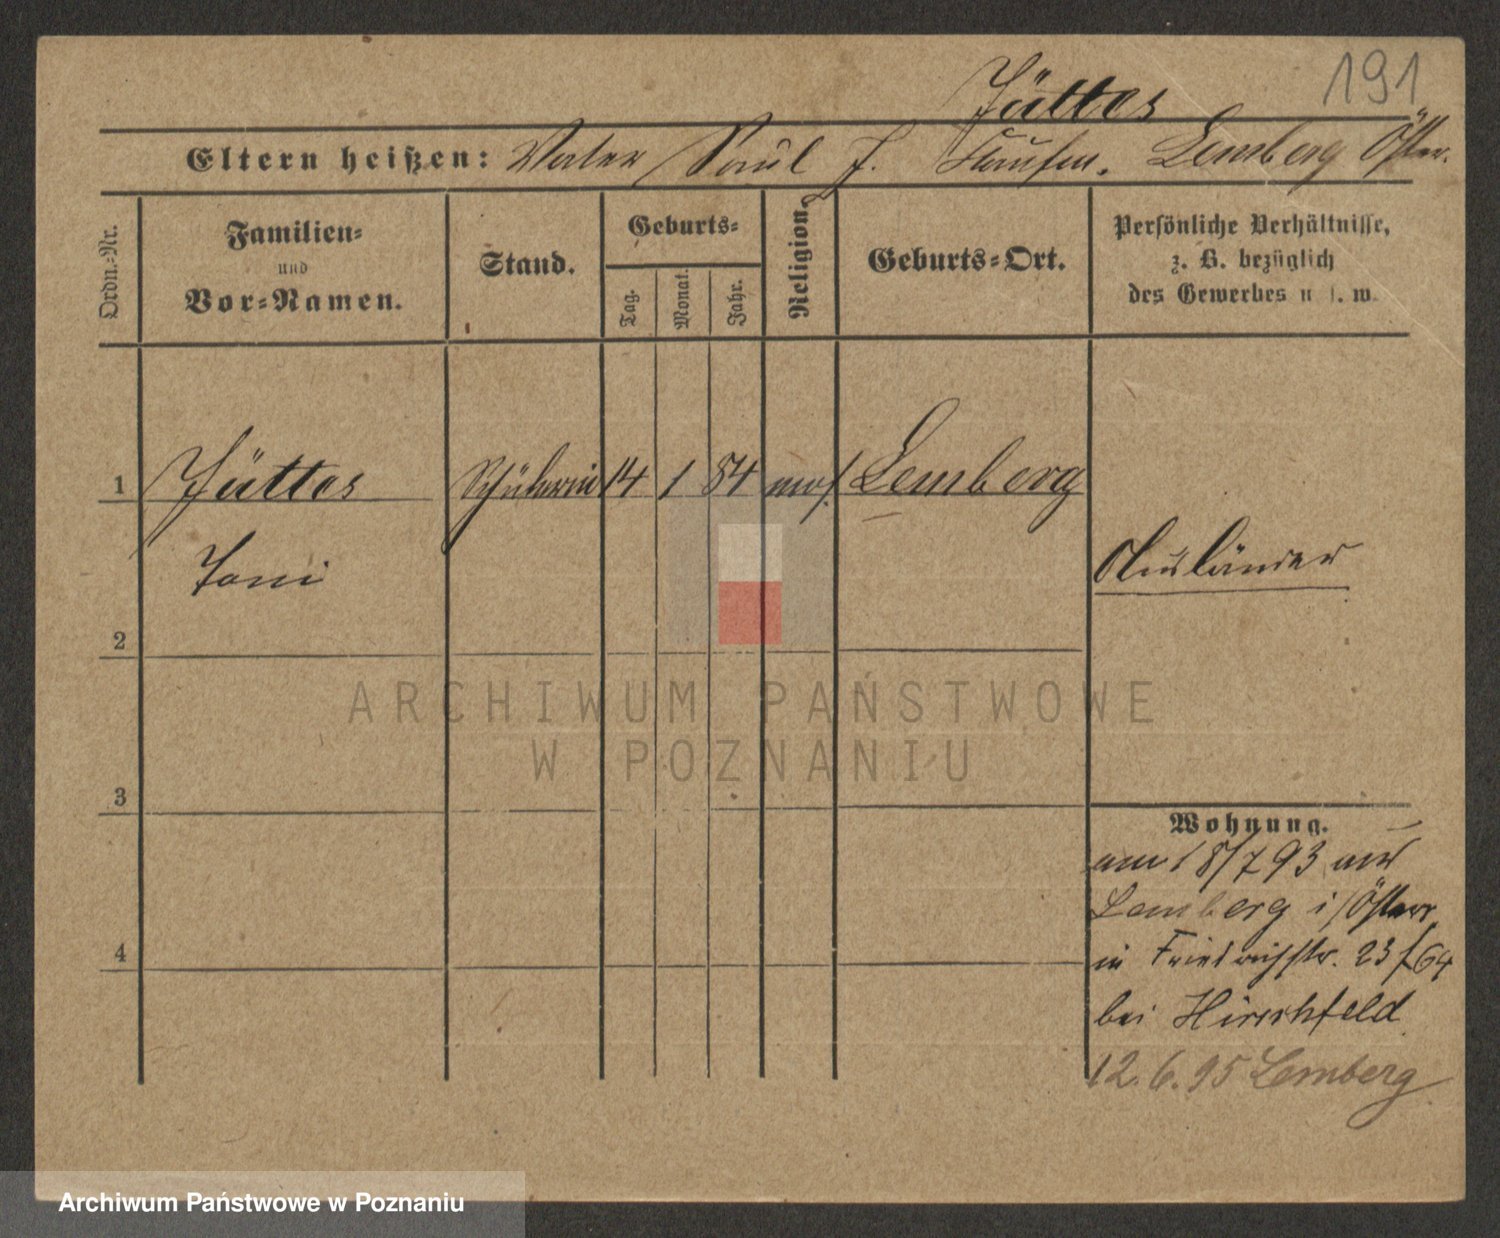 191
Jüttes
Eltern heißen: Vater Saul J. Kaufm. Lemberg Öster.
Ordn.-Nr.
Familien-
und
Vor-Namen.
Stand.
Geburts-
Tag.
Monat.
Jahr.
Religion.
Geburts-Ort.
Persönliche Verhältnisse,
z. B. bezüglich
des Gewerbes u. s. w.
1 Jüttes Schülerin 14 1 84 mos. Lemberg
Toni
Ausländer
2
ARCHIWUM PAŃSTWOWE
W POZNANIU
3
Wohnung.
am 18/7 93 aus
Lemberg i/Österr
in Friedrichstr. 23 f 64
bei Hirschfeld
4
12.6.95 Lemberg
Archiwum Państwowe w Poznaniu